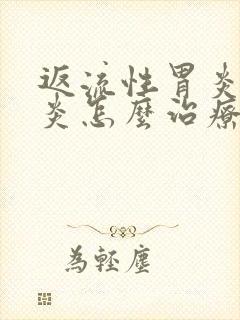 返流性胃炎
炎怎麼治療
為輕塵